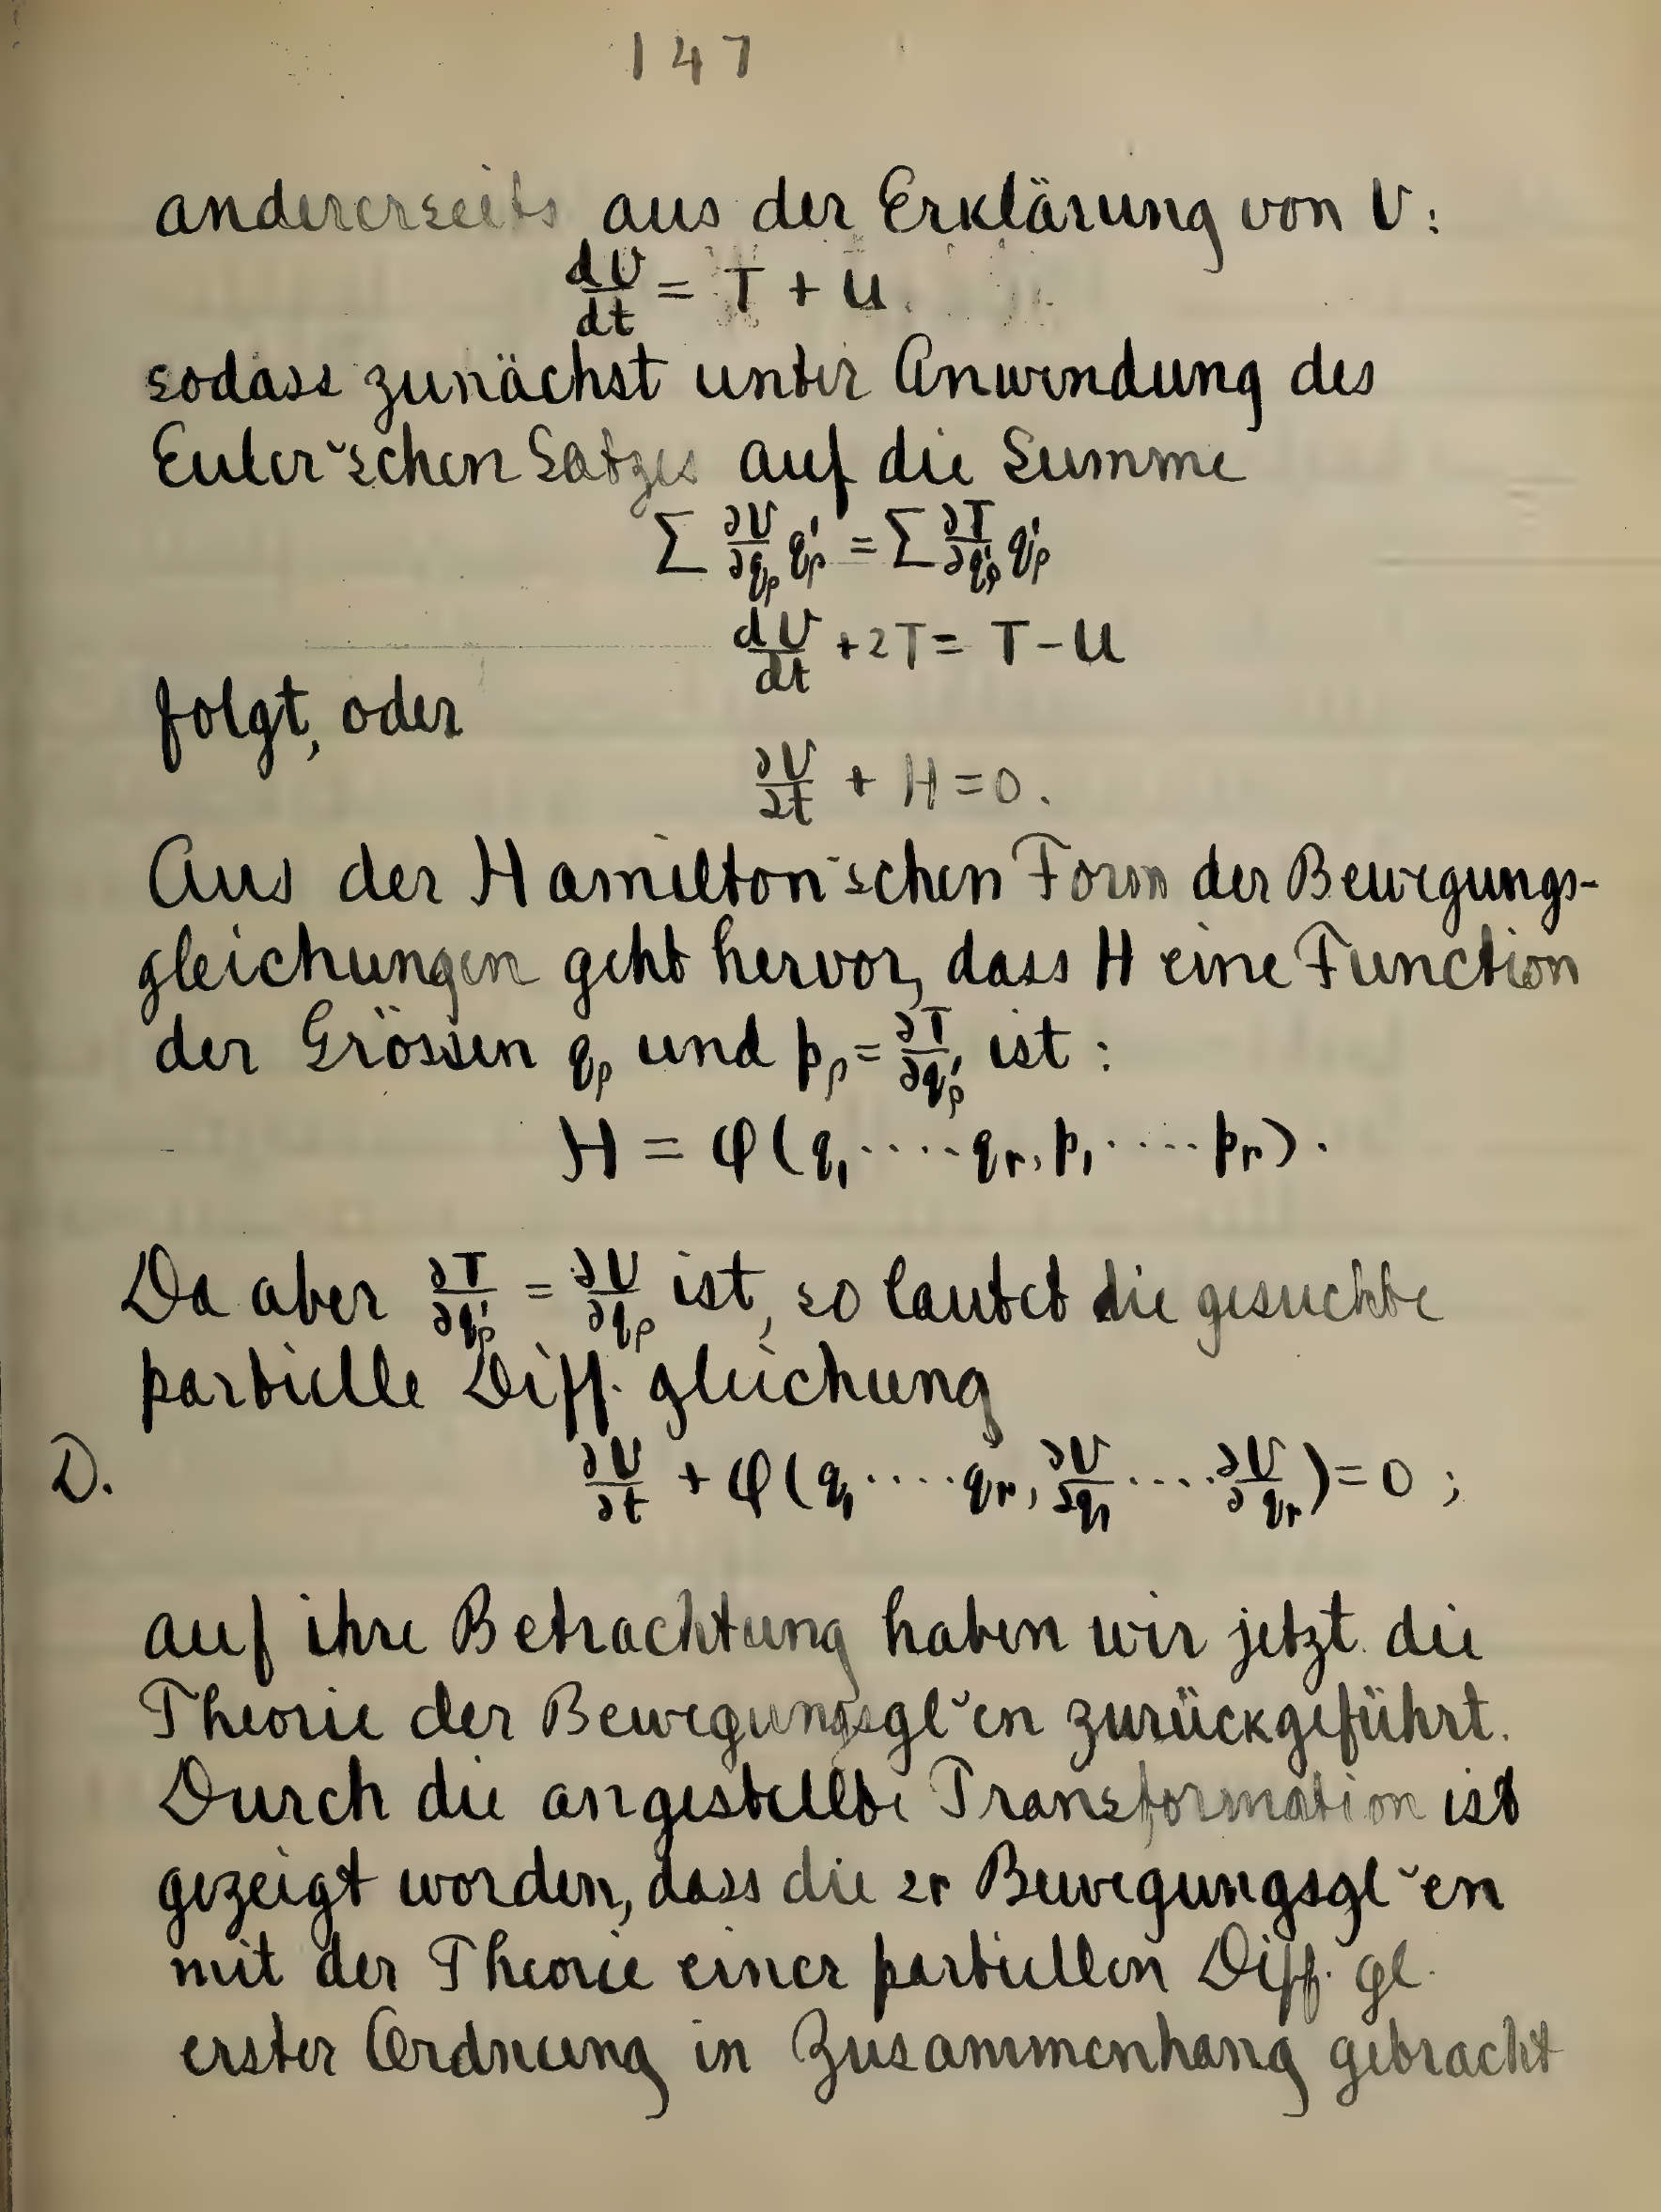 147
andererseits aus der Erklärung von V:
dV/dt = T + U.
sodass zunächst unter Anwendung des
Euler˘schen Satzes auf die Summe
∑ ∂V/∂qρ q'ρ = ∑ ∂T/∂q'ρ q'ρ
dV/dt + 2T = T – U
folgt, oder
∂V/∂t + H = 0.
Aus der Hamilton˘schen Form der Bewegungs-
gleichungen geht hervor, dass H eine Function
der Grössen qρ und pρ = ∂T/∂q'ρ ist:
H = φ(q₁ ···· qr, p₁ ····· pr).
Da aber ∂T/∂q'ρ = ∂V/∂qρ ist, so lautet die gesuchte
partielle Diff. gleichung
D. ∂V/∂t + φ(q₁ ···· qr, ∂V/∂q₁ ···· ∂V/∂qr) = 0 ;
auf ihre Betrachtung haben wir jetzt die
Theorie der Bewegungsgl˘en zurückgeführt.
Durch die angestellte Transformation ist
gezeigt worden, dass die 2r Bewegungsgl˘en
mit der Theorie einer partiellen Diff. gl.
erster Ordnung in Zusammenhang gebracht